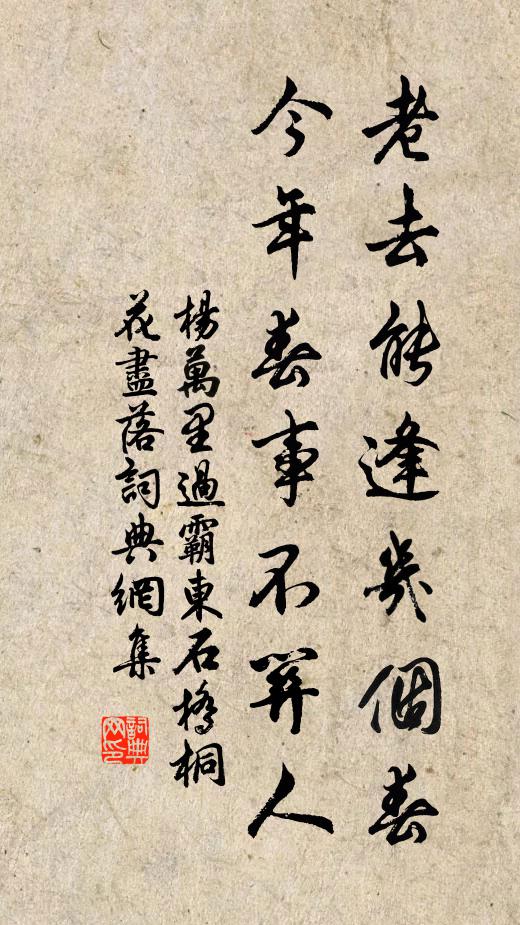 老去能逢幾個春
今年春事不關人
楊萬里過霸東石橋桐
花盡落詞典網集
詞典
网印